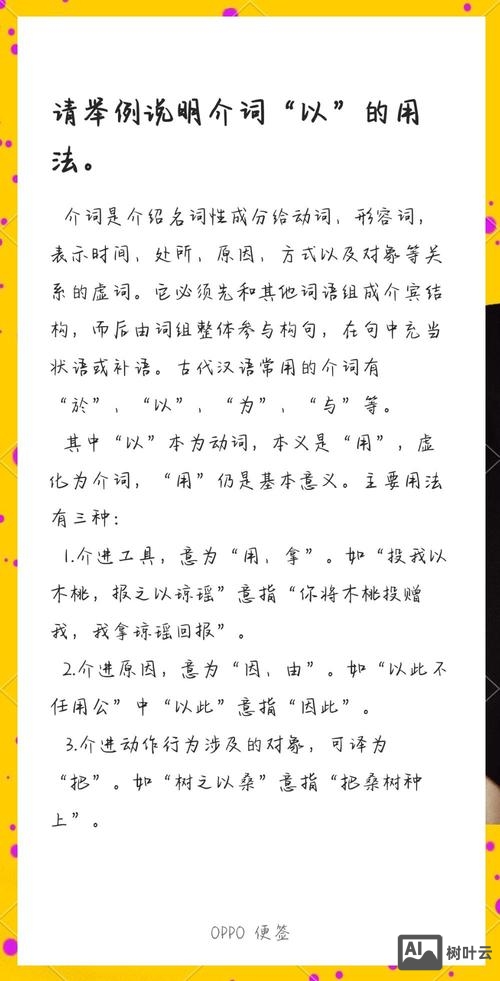 请举例说明介词“以”的用
法。
介词是介绍名词性成分给动词、形容词，
表示时间、处所、原因、方式以及对象等关
系的虚词。它必须先和其他词语组成介宾结
构，而后由词组整体参与构句，在句中充当
状语或补语。古代汉语常用的介词有
“於”、“以”、“为”、“与”等。
其中“以”本为动词，本义是“用”，虚
化为介词，“用”仍是基本意义。主要用法
有三种：
1.介进工具，意为“用、拿”。如“投我以
木桃，报之以谅瑶”意指“你将木桃投赠
我，我拿谅瑶回报”。
2.介进原因，意为“因、由”。如“以此不
任用公”中“以此”意指“因此”。
3.介进动作行为涉及的对象，可译为
“把”。如“树之以桑”意指“把桑树种
上”。
OPPO 便签
AI 树叶云